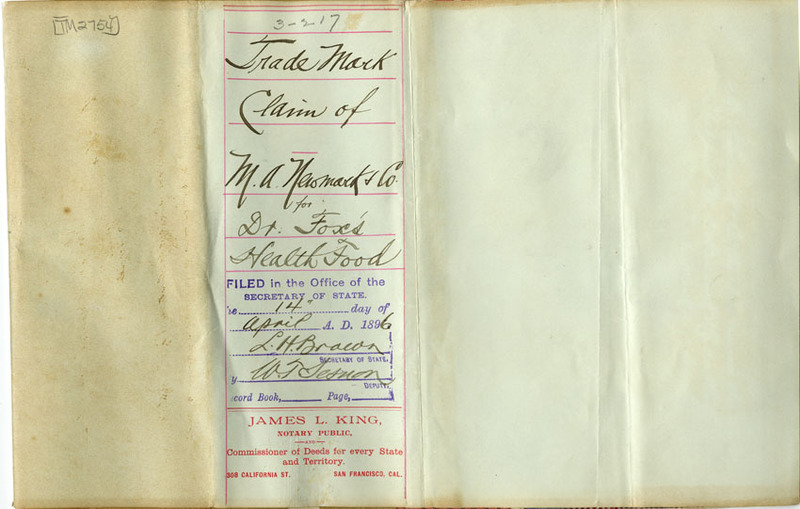 [TM2754]
3-217
Trade Mark
Claim of
M. A. Newmark & Co.
for
Dr. Fox's
Health Food
FILED in the Office of the
SECRETARY OF STATE.
14" day of
April A. D. 1896
L. H. Brown
SECRETARY OF STATE.
y W. T. Sesnon
DEPUTY.
cord Book, Page,
JAMES L. KING,
NOTARY PUBLIC,
—AND—
Commissioner of Deeds for every State
and Territory.
308 CALIFORNIA ST. SAN FRANCISCO, CAL.